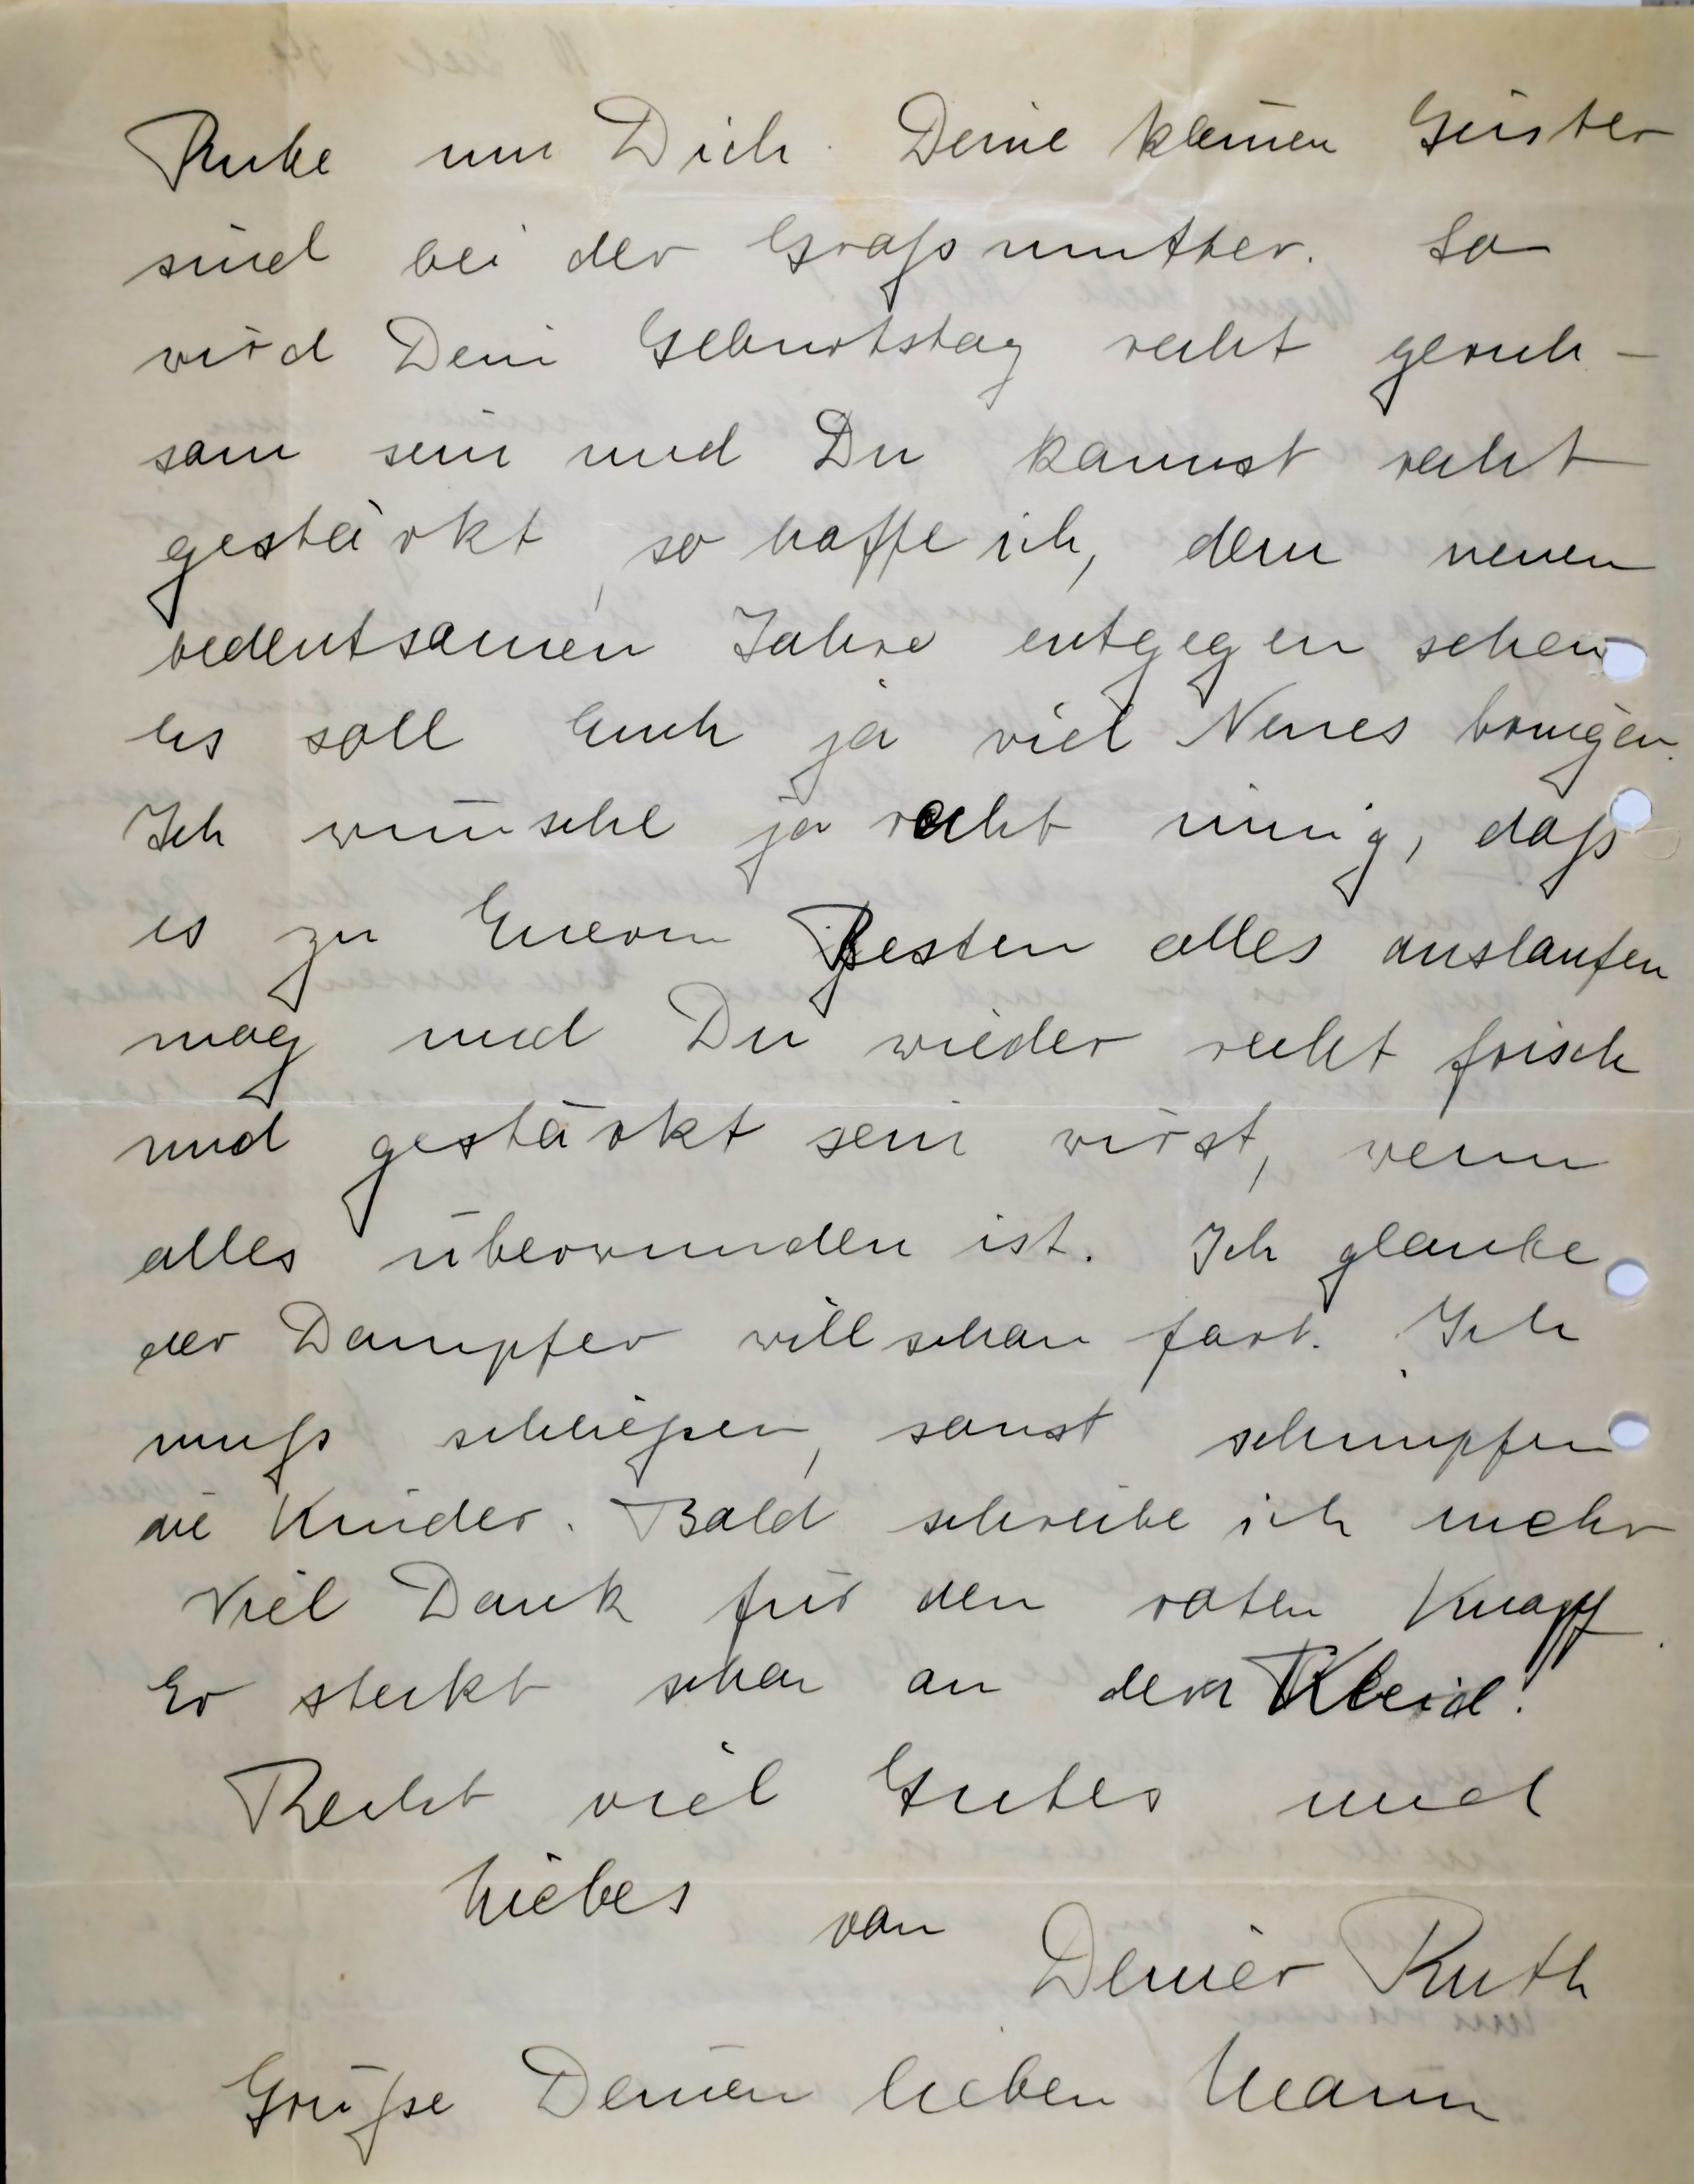 Ruhe um Dich. Deine kleinen Geister
sind bei der Großmutter. So
wird Dein Geburtstag recht geruh-
sam sein und Du kannst recht
gestärkt, so hoffe ich, dem neuen
bedeutsamen Jahre entgegen sehen
Es soll Euch ja viel Neues bringen.
Ich wünsche ja recht innig, daß
es zu Euerm Besten alles auslaufen
mag und Du wieder recht frisch
und gestärkt sein wirst, wenn
alles überwunden ist. Ich glaube
der Dampfer will schon fort. Ich
muß schließen, sonst schimpfen
die Kinder. Bald schreibe ich mehr
Viel Dank für den roten Knopf.
Er steckt schon an dem Kleid!
Recht viel Gutes und
Liebes
von
Deiner Ruth
Grüße Deinen lieben Mann